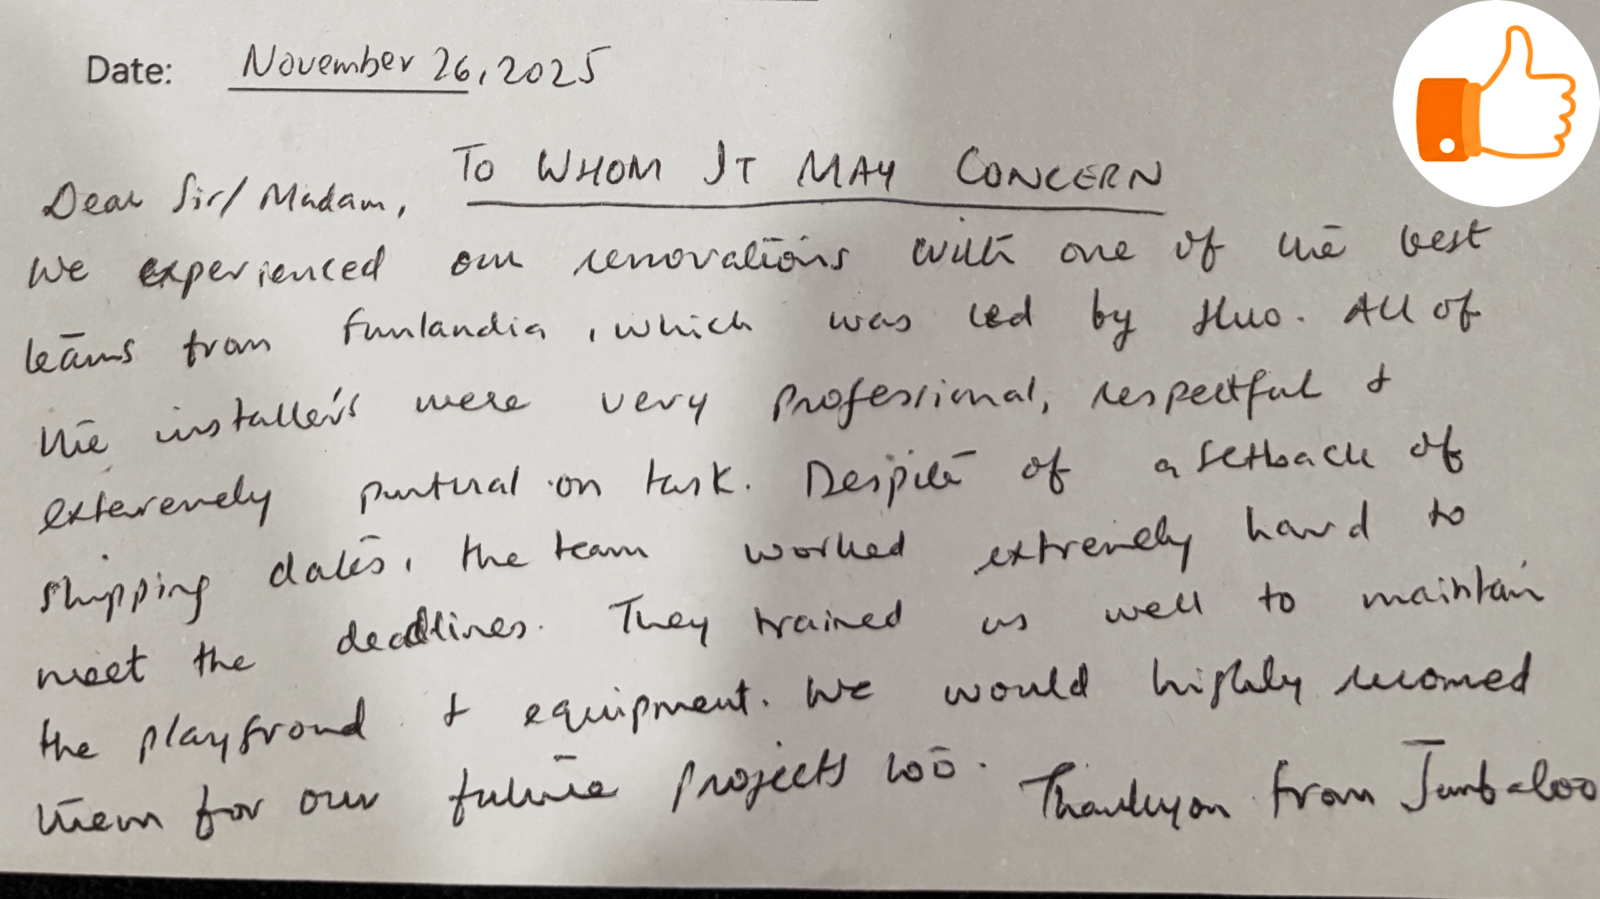 Date: November 26, 2025
TO WHOM IT MAY CONCERN
Dear Sir/Madam,
We experienced our renovations with one of the best
teams from Funlandia, which was led by Huo. All of
the installers were very professional, respectful &
exteremely puntual on task. Despite of a setback of
shipping dates, the team worked extremely hard to
meet the deadlines. They trained us well to maintain
the playground & equipment. We would highly recomed
them for our future projects too. Thankyou from Jumbaloo